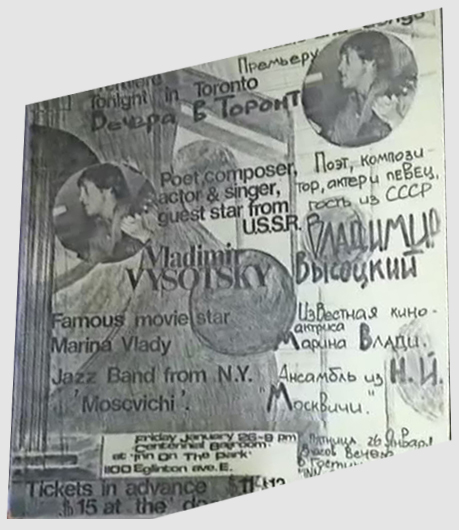 Songs
Премьеру
Tonight in Toronto
Вечера в Торонт
Poet, composer,
actor & singer,
guest star from
U.S.S.R.
Поэт, компози-
тор, актер и певец,
гость из СССР
Vladimir
VYSOTSKY
Владимир
Высоцкий
Famous movie star
Marina Vlady
Известная кино-
актриса
Марина Влади.
Jazz Band from N.Y.
'Moscvichi'.
Ансамбль из Н.Й.
"Москвичи."
friday january 26-8 pm
Centennial Ballroom
at 'Inn On The Park'
1100 Eglinton ave. E.
Пятница, 26 Января
8 часов вечера
Tickets in advance
$15 at the